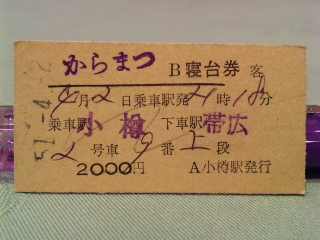 からまつ B寝台券 客
4月2日乗車駅発21時18分
乗車駅 小樽 下車駅 帯広
2号車9番上段
2000円 A小樽駅発行